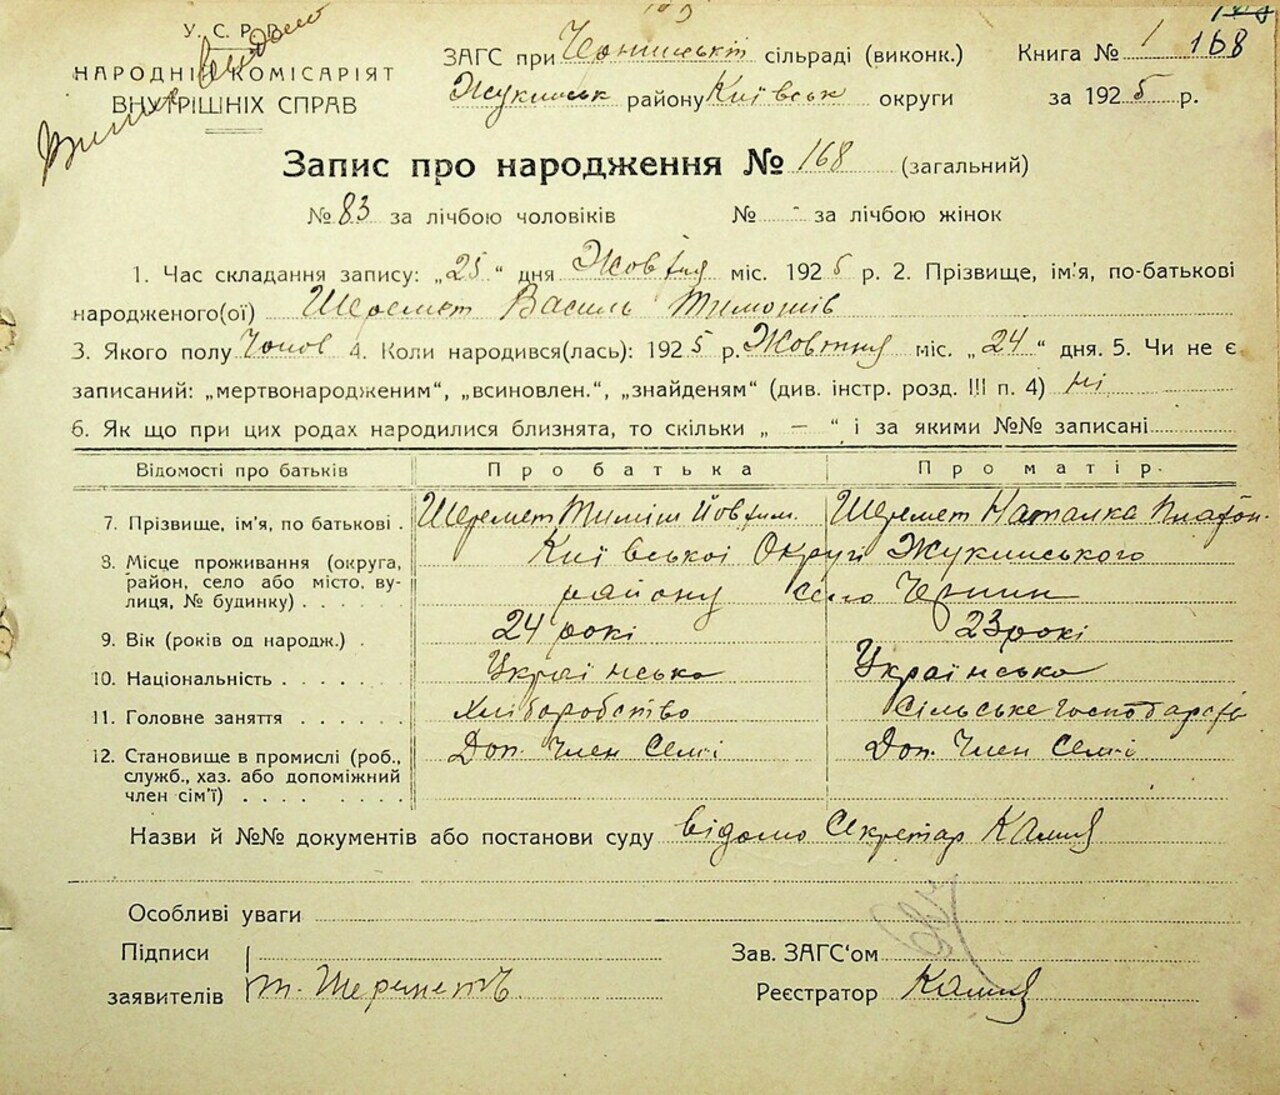 У. С. Р. Р.
НАРОДНІЙ КОМІСАРІЯТ
ВНУТРІШНІХ СПРАВ
ЗАГС при сільраді (виконк.)
Жукинськ району Київськ округи
Книга № 1 168
за 1925 р.
Запис про народження № 168 (загальний)
№ 83 за лічбою чоловіків № - за лічбою жінок
1. Час складання запису: „25“ дня Жовтня міс. 1925 р. 2. Прізвище, ім'я, по-батькові
народженого(ої) Шеремет Василь Тимошів
3. Якого полу Чолов 4. Коли народився(лась): 1925 р. Жовтня міс. „24“ дня. 5. Чи не є
записаний: „мертвонародженим“, „всиновлен.“, „знайденям“ (див. інстр. розд. III п. 4) ні
6. Як що при цих родах народилися близнята, то скільки „ — “ і за якими №№ записані
Відомості про батьків Про батька Про матір.
7. Прізвище, ім'я, по батькові . Шеремет Тиміш Йовхим. Шеремет Наталка Платон.
8. Місце проживання (округа, район, село або місто, вулиця, № будинку) . . . . . . Київської Округи Жукинського
району село Чернин
9. Вік (років од народж.) . 24 рокі 23 рокі
10. Національність . . . . . . Українська Українська
11. Головне заняття . . . . . . Хліборобство Сільське господарств
12. Становище в промислі (роб., служб., хаз. або допоміжний член сім'ї) . . . . . . . . Доп. Член Семї Доп. Член Семї
Назви й №№ документів або постанови суду відомо Секретар
Особливі уваги
Підписи
заявителів Т. Шереметъ
Зав. ЗАГС‘ом
Реєстратор